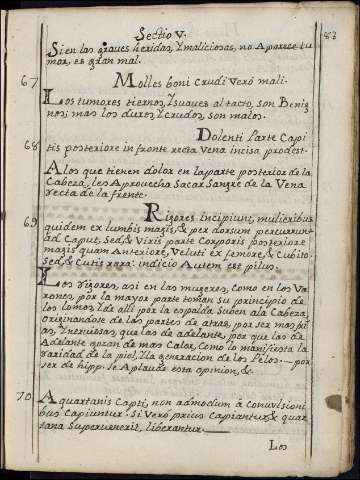 Sectio V.
83
Si en las graves heridas, y maliciosas, no Aparece tu
mor, es gran mal.
67
Molles boni Crudi Veró mali.
Los tumores tiernos, y suaves al tacto, son Benig
nos; mas los duros, y Crudos, son malos.
68
Dolenti Parte Capi
tis posteriore in fronte recta Vena incisa prodest.
A los que tienen dolor en la parte posterior de la
Cabeza, les Aprovecha Sacar Sangre de la Vena
recta de la frente.
69
Rigores Incipiunt, mulieribus
quidem ex lumbis magis, & per dorsum percurrunt
ad Caput, Sed & Viris parte Corporis posteriore
magis quam Anteriore, Veluti ex femore, & Cubito
Sed & Cutis rara: indicio Autem est pilus.
Los rigores, asi en las mugeres, como en los Va
rones, por la mayor parte toman su principio de
los lomos, y de alli por la espalda Suben ala Cabeza,
originandose de las partes de atras, por ser mas frias,
y nerviosas, que las de adelante, por que las de
Adelante gozan de mas Calor, como lo manifiesta la
raridad de la piel, y la generacion de los Pelos. por
ser de hipp. se Aplaude esta opinion, &
70
A quartanis Capti, non admodum à Convulsioni
bus Capiuntur. Si Veró prius Capiantur & quar
tana Supervenerit, liberantur.
Los